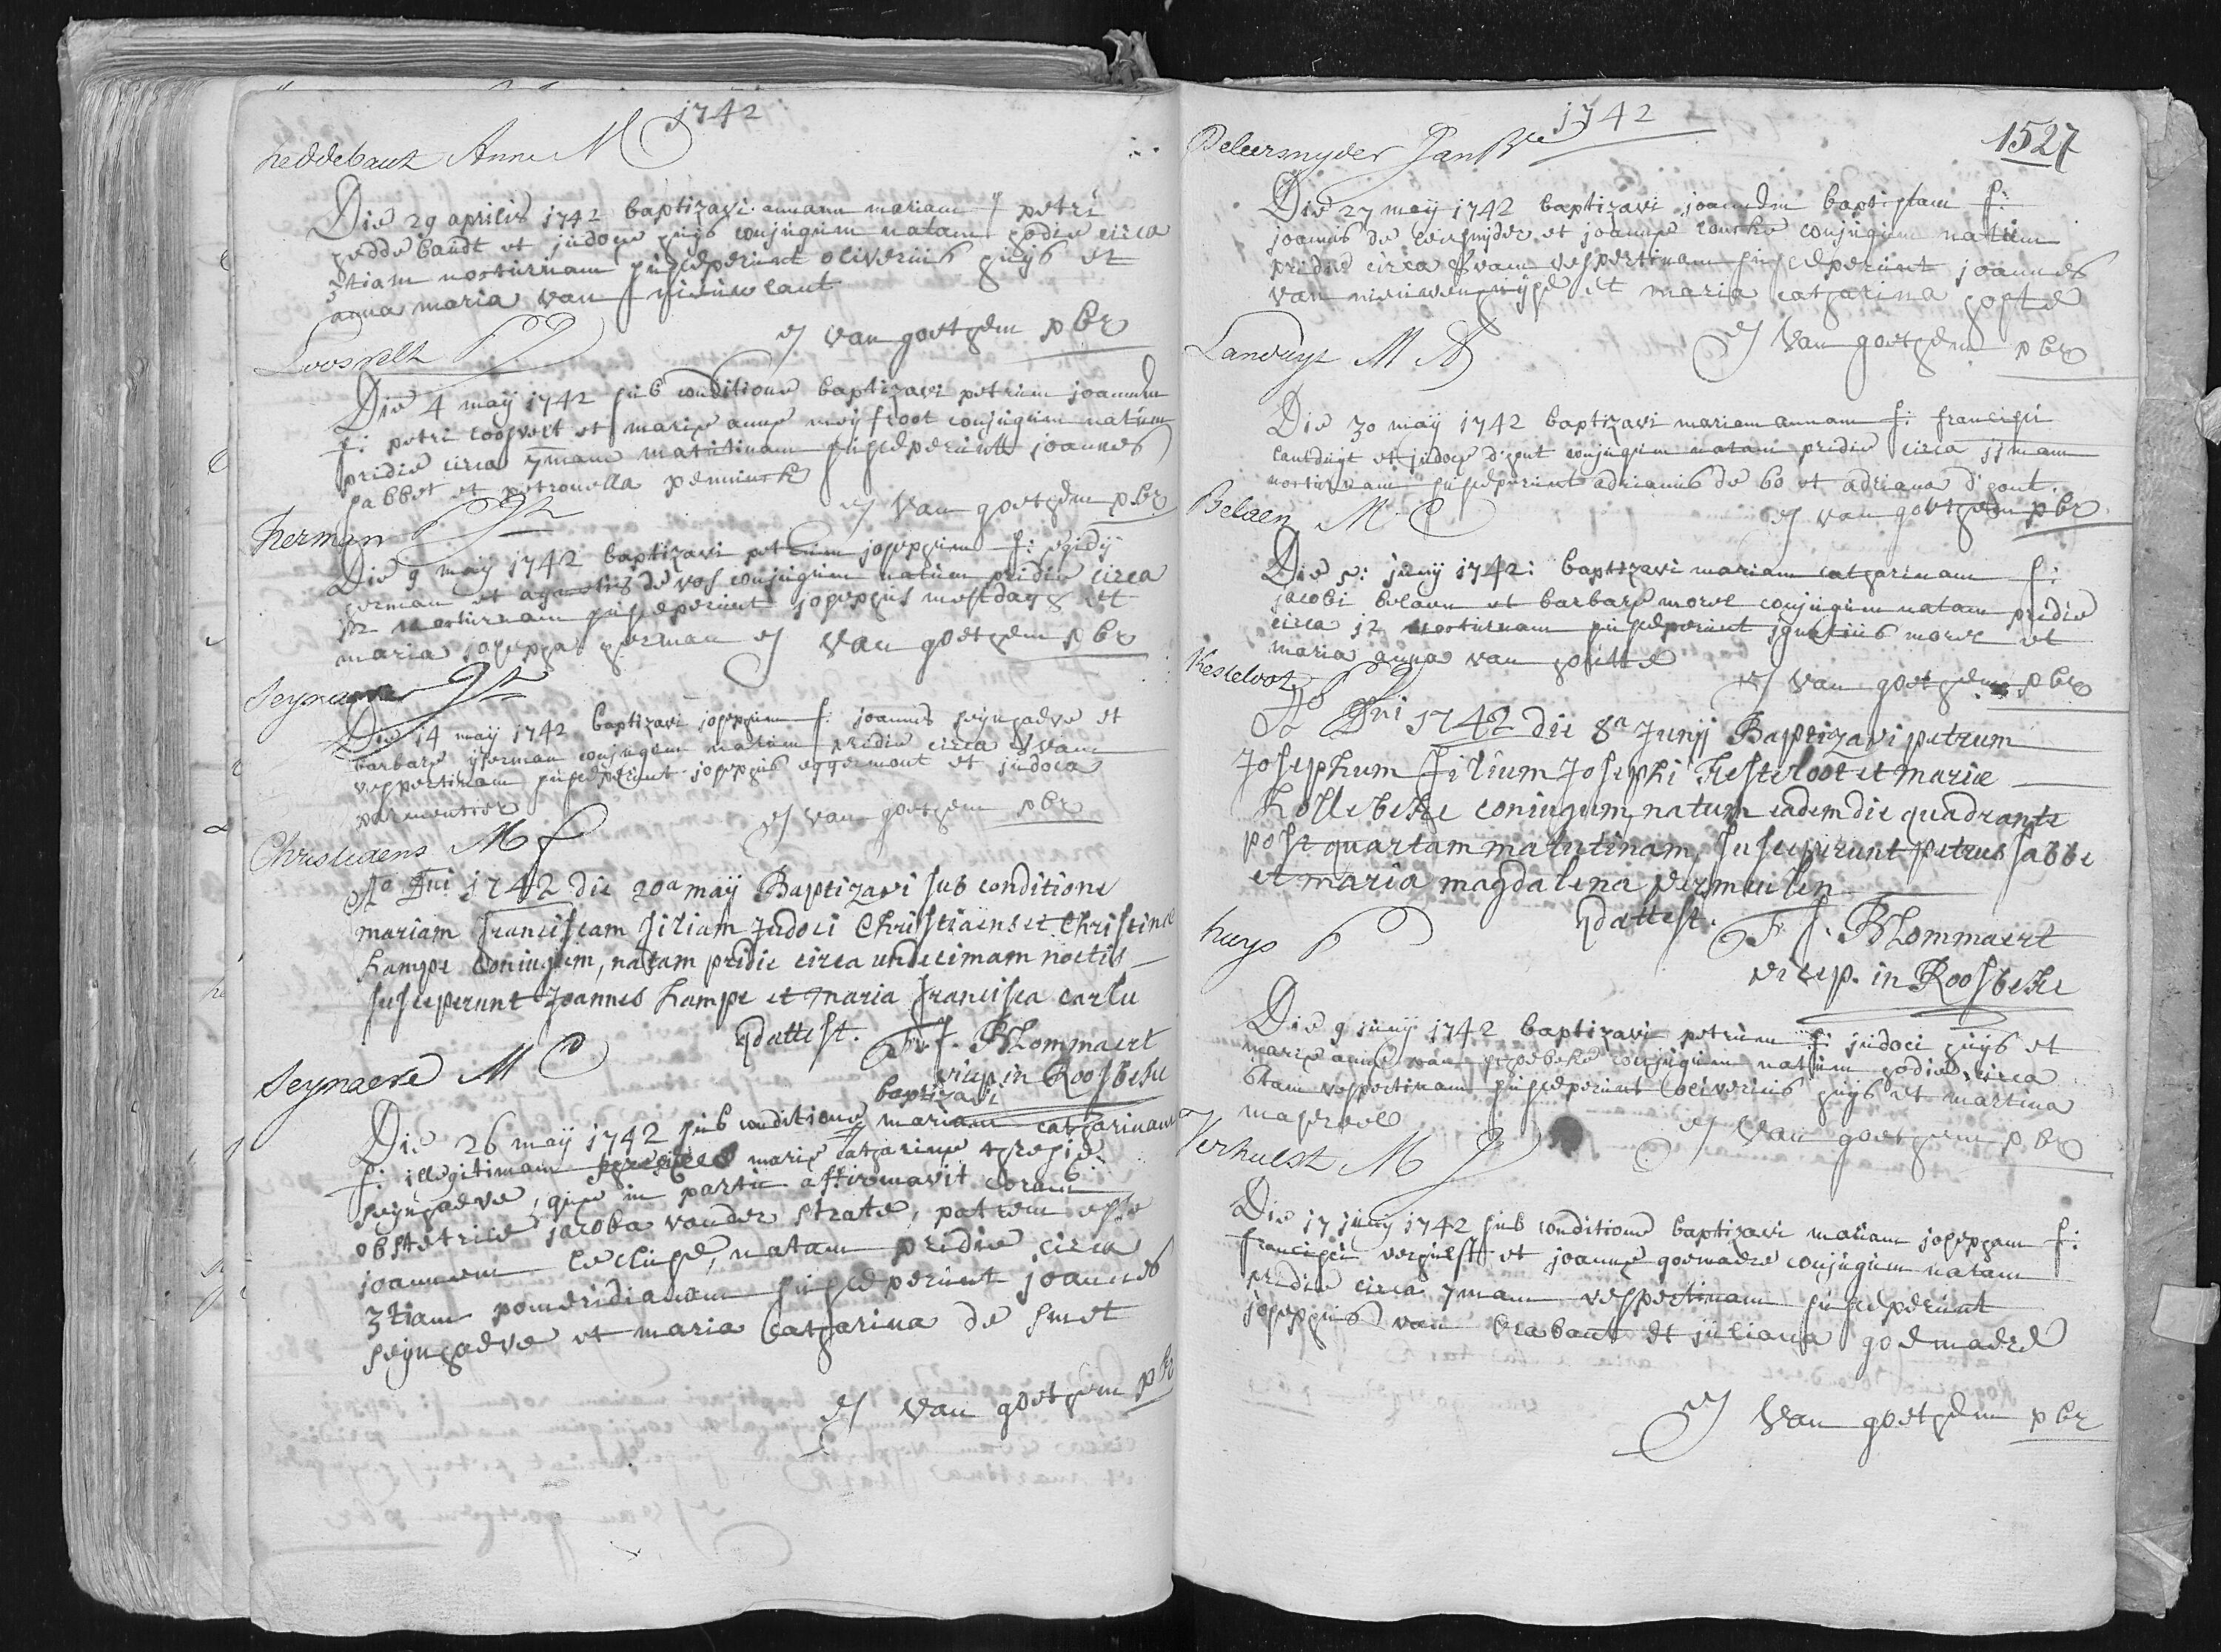 1742
heddebaut Anne M
Die 29 aprilis 1742 baptizavi annam mariam f petri
hedde baudt et judocæ huijs conjugum natam hodie circa
3tiam nocturnam susceperunt oliverius huijs et
anna maria van nieuwlant
van goethem pbr
Loosvelt P J
Die 4 maij 1742 sub conditione baptizavi petrum joannem
f: petri loosvelt et mariæ annæ meijsroot conjugum natum
pridie circa 7mam matutinam susceperunt joannes
sabbet et petronella penninck
van goethem pbr
herman
Die 9 maij 1742 baptizavi petrum josephum f: egidij
herman et agnetis de vos conjugum natum pridie circa
12 nocturnam susceperunt josephus mestdagh et
maria josepha herman van goethem pbr
Seynaeve
Die 14 maij 1742 baptizavi josephum f: joannis seijnhaeve et
barbaræ ijserman conjugum natum pridie circa 8vam
vespertinam susceperunt josephus eggermont et judoca
parmentier
van goethem pbr
Christiaens M f
Ao Dni 1742 die 20a maij Baptizavi sub conditione
mariam franciscam filiam Judoci Christiaens et Christinæ
Lampe coniugum, natam pridie circa undecimam noctis
susceperunt Joannes Lampe et maria francisca carlu
qd attest. F. J. Blommaert
vicep. in Roosbeke
Seynaeve M C
baptizavi
Die 26 maij 1742 sub conditione mariam catharinam
f: illegitimam mariæ catharinæ theresiæ
seijnhaeve, quæ in partu affirmavit coram
obstetrice jacoba vander strate, patrem esse
joannem lecluse, natam pridie circa
3tiam pomeridianam susceperunt joannes
seijnhaeve et maria catharina de smet
van goethem pbr
1742
1527
Deleersnyder Jan Bte
Die 27 maij 1742 baptizavi joannem baptistam f:
joannis de leersnijder et joannæ loncke conjugum natum
pridie circa 8vam vespertinam susceperunt joannes
van nieuwenhuijse et maria catharina hoste
van goethem pbr
Landuyt M A
Die 30 maij 1742 baptizavi mariam annam f: francisci
lantduijt et judocæ d'hont conjugum natam pridie circa 11mam
nocturnam susceperunt adrianus de bo et adriana d'hont
van goethem pbr
Belaen M C
Die 5: junij 1742: baptizavi mariam catharinam f:
jacobi belaen et barbaræ morel conjugum natam pridie
circa 12 nocturnam susceperunt ignatius morel et
maria anna van houtte
van goethem pbr
Kesteloot P J
Ao Dni 1742 die 8a Junij Baptizavi petrum
Josephum filium Josephi Kesteloot et mariæ
Hollebeke coniugum, natum eadem die quadrante
post quartam matutinam, susceperunt petrus sabbe
et maria magdalena vermeulen
qd attest. F. J. Blommaert
vicep. in Roosbeke
huys P
Die 9 junij 1742 baptizavi petrum f: judoci huijs et
mariæ annæ van hoebeke conjugum natum hodie circa
6tam vespertinam susceperunt oliverius huijs et martina
mahreel
van goethem pbr
Verhulst M J
Die 17 junij 1742 sub conditione baptizavi mariam josepham f:
francisci verhulst et joannæ goemaere conjugum natam
pridie circa 7mam vespertinam susceperunt
josephus van brabant et juliana goemaere
van goethem pbr